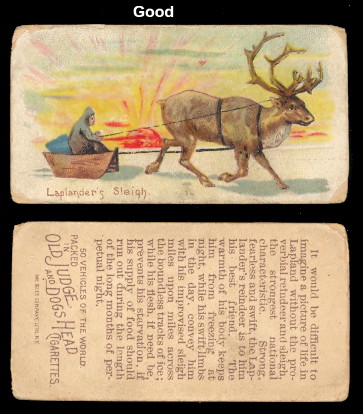 Good
Laplander's Sleigh.
It would be difficult to
imagine a picture of life in
Lapland without the pro-
verbial reindeer and sleigh
the strongest national
characteristic. Strong,
fearless and swift, the Lap-
lander's reindeer is to him
his best friend. The
warmth of his body keeps
him from freezing at
night, while his swift limbs
in the day, convey him
with his improvised sleigh
miles upon miles across
the boundless tracks of ice;
while his flesh, if need be,
prevents his starvation if
his supply of food should
run out during the length
of the long months of per-
petual night.
50 VEHICLES OF THE WORLD
PACKED
IN
OLD JUDGE
AND DOGS HEAD
CIGARETTES.